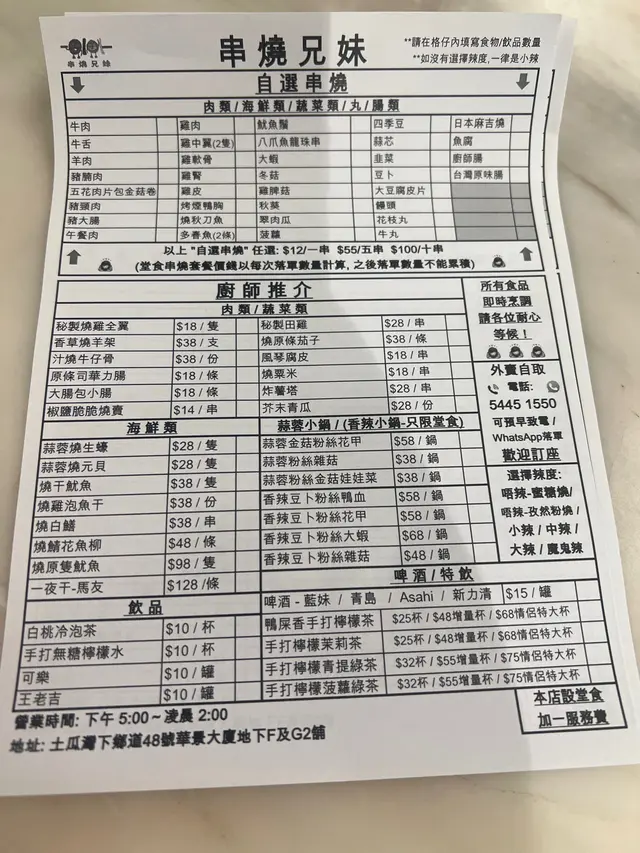 串燒兄妹
串燒兄妹
**請在格仔內填寫食物/飲品數量
**如沒有選擇辣度,一律是小辣
自選串燒
肉類/海鮮類/蔬菜類/丸/腸類
牛肉 雞肉 魷魚鬚 四季豆 日本麻吉燒
牛舌 雞中翼(2隻) 八爪魚龍珠串 蒜芯 魚腐
羊肉 雞軟骨 大蝦 韭菜 廚師腸
豬腩肉 雞腎 冬菇 豆卜 台灣原味腸
五花肉片包金菇卷 雞皮 雞脾菇 大豆腐皮片
豬頸肉 烤煙鴨胸 秋葵 饅頭
豬大腸 燒秋刀魚 翠肉瓜 花枝丸
午餐肉 多春魚(2條) 菠蘿 牛丸
以上 "自選串燒" 任選: $12/一串 $55/五串 $100/十串
(堂食串燒套餐價錢以每次落單數量計算, 之後落單數量不能累積)
廚師推介
肉類/蔬菜類
秘製燒雞全翼 $18 / 隻 秘製田雞 $28 / 串
香草燒羊架 $38 / 支 燒原條茄子 $38 / 條
汁燒牛仔骨 $38 / 份 風琴腐皮 $18 / 串
原條司華力腸 $18 / 條 燒粟米 $18 / 串
大腸包小腸 $18 / 條 炸薯塔 $28 / 串
椒鹽脆脆燒賣 $14 / 串 芥末青瓜 $28 / 份
海鮮類
蒜蓉燒生蠔 $28 / 隻
蒜蓉燒元貝 $28 / 隻
燒干魷魚 $38 / 隻
燒雞泡魚干 $38 / 份
燒白鱔 $38 / 串
燒鯖花魚柳 $48 / 條
燒原隻魷魚 $98 / 隻
一夜干-馬友 $128 /條
蒜蓉小鍋 / (香辣小鍋-只限堂食)
蒜蓉金菇粉絲花甲 $58 / 鍋
蒜蓉粉絲雜菇 $38 / 鍋
蒜蓉粉絲金菇娃娃菜 $38 / 鍋
香辣豆卜粉絲鴨血 $58 / 鍋
香辣豆卜粉絲花甲 $58 / 鍋
香辣豆卜粉絲大蝦 $68 / 鍋
香辣豆卜粉絲雜菇 $48 / 鍋
所有食品
即時烹調
請各位耐心
等候！
外賣自取
電話:
5445 1550
可預早致電 /
WhatsApp落單
歡迎訂座
選擇辣度:
唔辣-蜜糖燒/
唔辣-孜然粉燒 /
小辣 / 中辣 /
大辣 / 魔鬼辣
飲品
白桃冷泡茶 $10 / 杯
手打無糖檸檬水 $10 / 杯
可樂 $10 / 罐
王老吉 $10 / 罐
啤酒/特飲
啤酒 - 藍妹 / 青島 / Asahi / 新力清 $15 / 罐
鴨屎香手打檸檬茶 $25杯 / $48增量杯 / $68情侶特大杯
手打檸檬茉莉茶 $25杯 / $48增量杯 / $68情侶特大杯
手打檸檬青提綠茶 $32杯 / $55增量杯 / $75情侶特大杯
手打檸檬菠蘿綠茶 $32杯 / $55增量杯 / $75情侶特大杯
本店設堂食
加一服務費
營業時間: 下午 5:00 ~ 凌晨 2:00
地址: 土瓜灣下鄉道48號華景大廈地下F及G2舖